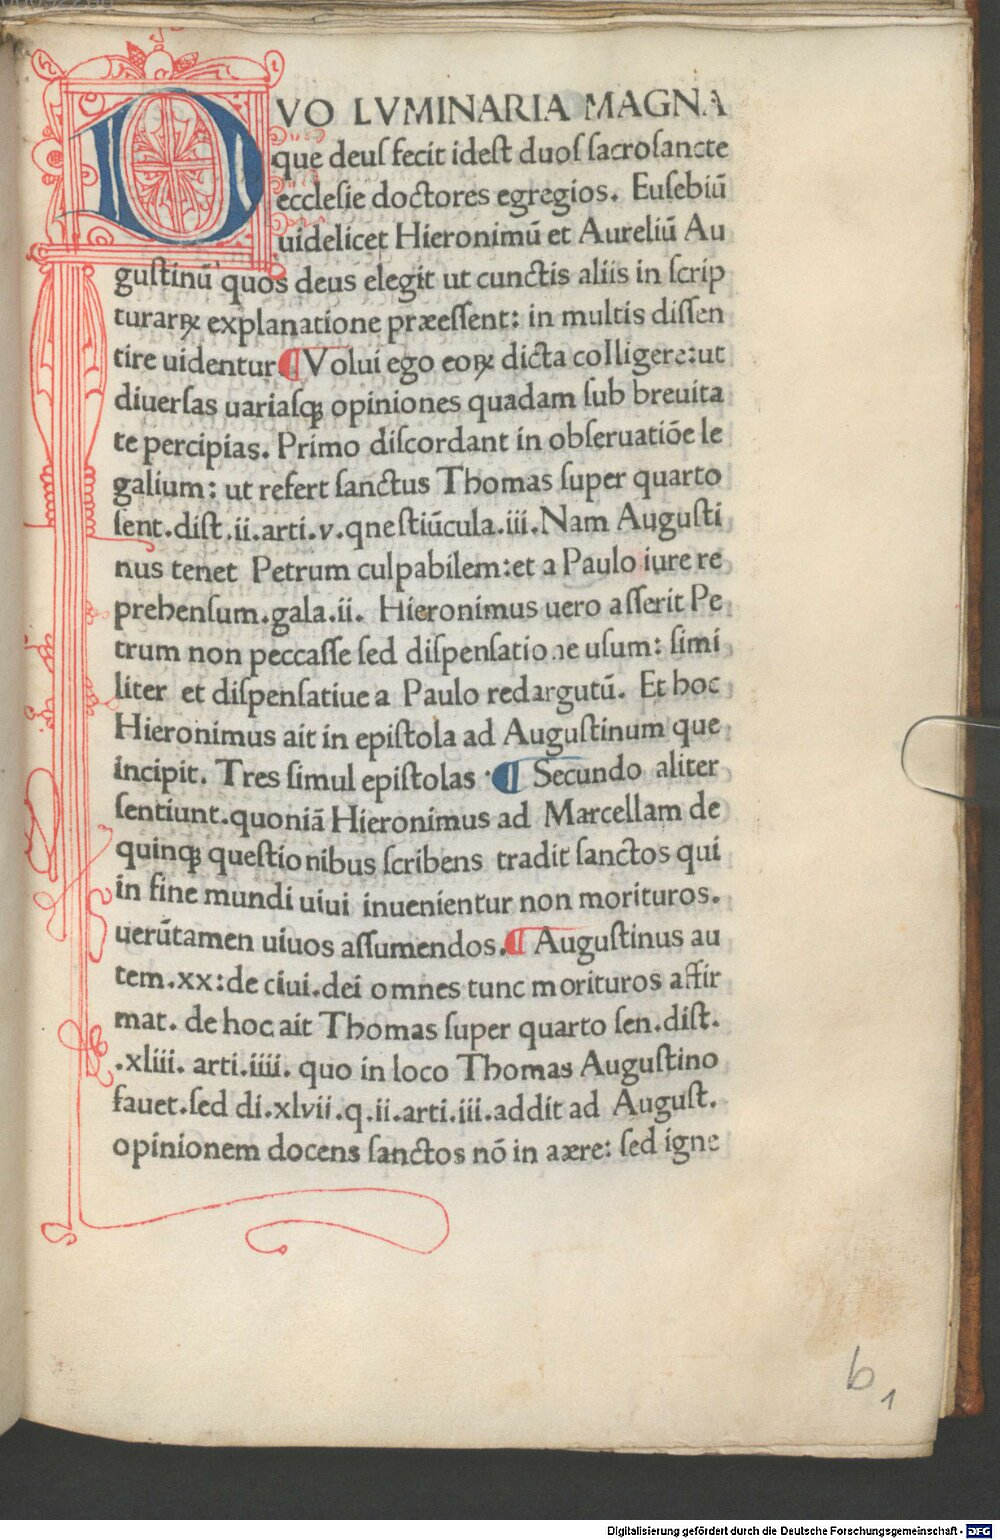 DVO LVMINARIA MAGNA
que deuſ fecit ideſt duoſ ſacroſancte
eccleſie doctores egregios. Euſebiū
uidelicet Hieronimū et Aureliū Au
guſtinū quos deus elegit ut cunctis aliis in ſcrip
turarꝝ explanatione præeſſent: in multis diſſen
tire uidentur ¶ Volui ego eorꝝ dicta colligere: ut
diuerſas uariaſqꝫ opiniones quadam ſub breuita
te percipias. Primo diſcordant in obſeruatiōe le
galium: ut refert ſanctus Thomas ſuper quarto
ſent. diſt. ii. arti. v. qneſtiūcula. iii. Nam Auguſti
nus tenet Petrum culpabilem: et a Paulo iure re
prehenſum. gala. ii. Hieronimus uero aſſerit Pe
trum non peccaſſe ſed diſpenſatione uſum: ſimi
liter et diſpenſatiue a Paulo redargutū. Et hoc
Hieronimus ait in epiſtola ad Auguſtinum que
incipit. Tres ſimul epiſtolas ¶ Secundo aliter
ſentiunt. quoniā Hieronimus ad Marcellam de
quinqꝫ queſtionibus ſcribens tradit ſanctos qui
in fine mundi uiui inuenientur non morituros.
uerūtamen uiuos aſſumendos. ¶ Auguſtinus au
tem. xx: de ciui. dei omnes tunc morituros affir
mat. de hoc ait Thomas ſuper quarto ſen. diſt.
.xliii. arti. iiii. quo in loco Thomas Auguſtino
fauet. ſed di. xlvii. q. ii. arti. iii. addit ad Auguſt.
opinionem docens ſanctos nō in aære: ſed igne
b1
Digitalisierung gefördert durch die Deutsche Forschungsgemeinschaft - DFG